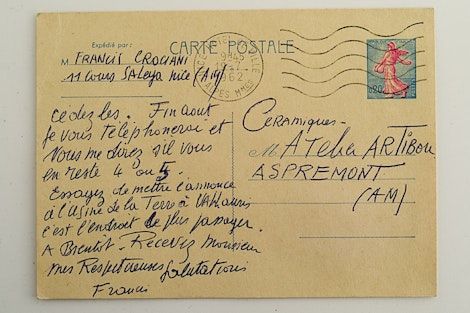 Expédié par :
CARTE POSTALE
M FRANCIS CROCIANI
11 Cours SALEYA Nice (AM)
NICE VILLE
19H45
1962
ALPES MMES
0,20
Cédez les. Fin Aout
Je vous Téléphonerai et
Vous me direz s'il vous
en reste 4 ou 5.
Essayez de mettre l'annonce
à l'Usine de la Terre à VAllauris
c'est l'endroit le plus passager.
A Bientôt - Recevez Monsieur
mes Respectueuses Salutations
Francis
CERAMIQUES-
M. Atelier ARTIBOU
ASPREMONT
(AM)